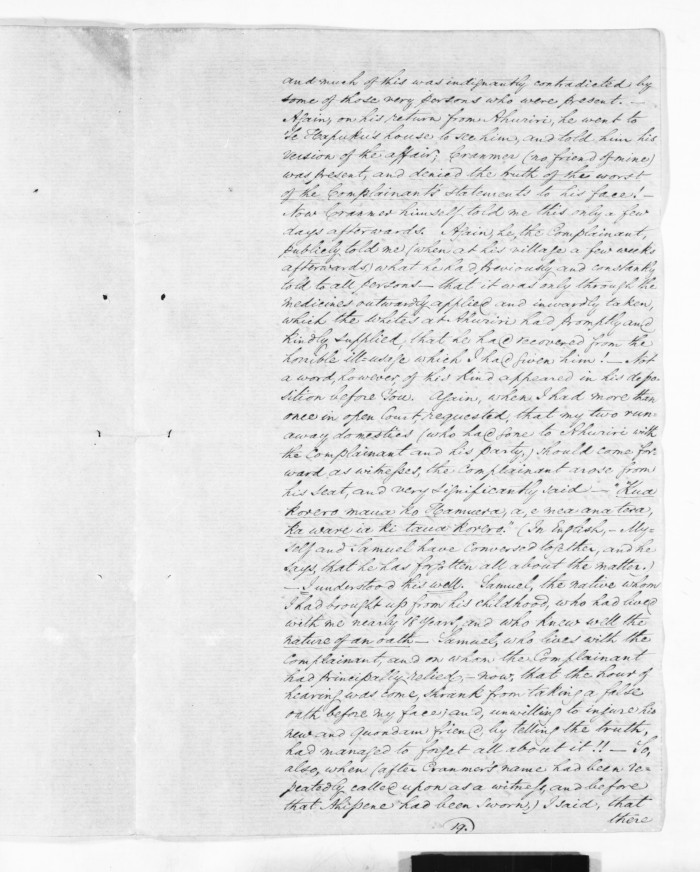 and much of this was indignantly contradicted by
some of those very persons who were present. —
Again, on his return from Ahuriri, he went to
Te Hapuku's house to see him, and told him his
version of the affair; Cranmer (no friend of mine)
was present, and denied the truth of the worst
of the Complainant's statements to his face! —
Now Cranmer himself told me this only a few
days afterwards. Again, he, the Complainant,
publicly told me (when at his village a few weeks
afterwards) what he had previously and constantly
told to all persons — that it was only through the
medicines outwardly applied and inwardly taken,
which the whites at Ahuriri had promptly and
kindly supplied, that he had recovered from the
horrible ill-usage which I had given him! — Not
a word, however, of this kind appeared in his depo-
sition before You. Again, when I had more than
once in open Court, requested, that my two run-
away domestics (who had gone to Ahuriri with
the Complainant and his party,) should come for-
ward as witnesses, the Complainant arose from
his seat, and very significantly said — "Kua
korero maua ko Hamuera, a, e mea ana tera,
ka ware ia ki taua korero." (In English, — My-
self and Samuel have conversed together, and he
says, that he has forgotten all about the matter.)
— I understood this well. Samuel, the native whom
I had brought up from his childhood, who had lived
with me nearly 10 years, and who knew well the
nature of an oath — Samuel, who lives with the
Complainant, and on whom the Complainant
had principally relied; — now, that the hour of
hearing was come, shrank from taking a false
oath before my face; and, unwilling to injure his
new and quondam friend by telling the truth,
had managed to forget all about it!! — So,
also, when (after Cranmer's name had been re-
peatedly called upon as a witness, and before
that Ahipene had been sworn,) I said, that
there
19.